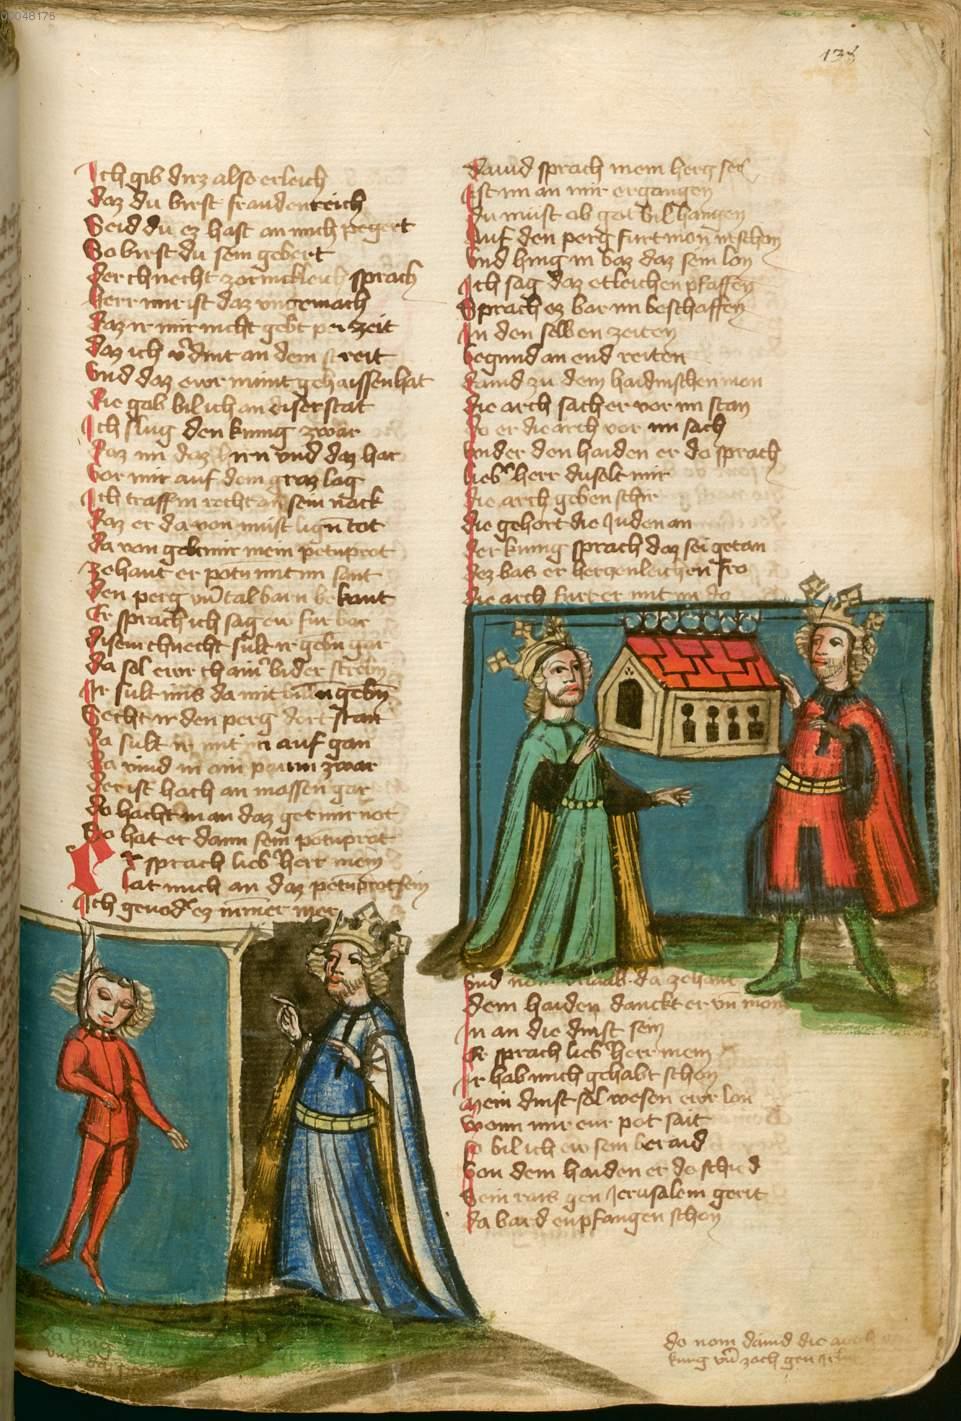 00048176
138
Ich gib dirz also erleich
daz du birst fraudenreich
Seid du ez hast an mich pegert
So birst du sein gebert
der chnecht zornickleich sprach
herr mir ist daz ungemach
daz ir mir nicht gebt per zeit
daz ich vdint an dem streit
Vnd daz ewr munt gehaissen hat
die gab bil ich an diser stat
Ich slug den kunig zwar
daz im daz hirn vnd daz har
vor mir auf dem graz lag
Ich traff in recht an sein nack
daz er da von must lign tot
da von gebt mir mein petnprot
zehant er potn mit im sant
den perg vn tal barn bekant
Er sprach ich sag ew fur bar
disem chnecht sult ir gebn gar
da sol ewr chainr bider strebn
Ir sult ims da mit billn gebn
Secht ir den perg dort stan
da sult ir mit im auf gan
da vind ir ain paum zwar
der ist hoch an massen gar
do hacht man daz get mir not
So hat er dann sein potnprot
Er sprach lieber herr mein
lat mich an daz petnprot sein
Ich gevodr ez nimmer mer
dauid sprach mein herz ser
Ist im an mir ergangen
du must ob got bil hangen
Auf den perg furt mon in schon
Vnd hing in daz daz sein lon
Ich sag daz etleichen pfaffen
Sprach ez bar im beschaffen
In den selben zeiten
begund an end reiten
dauid zu dem haidnischen mon
die arch sach er vor im stan
do er die arch vor im sach
vnder den haiden er do sprach
lieber herr du solt mir
die arch geben schir
die gehort die Juden an
der kunig sprach daz sei getan
dez bas er herzenleichen fro
die arch furt er mit im do
Vnd nom vrlaub da zehant
dem haiden danckt er vn mon
In an die dinst sein
Er sprach lieber herr mein
Ir hab mich gehabt schon
Mein dinst sol wesen ewr lon
wann mir eur pot sait
so bil ich ew sein beraid
Von dem haiden er do schid
Sein rais gen Jerusalem gerit
da bard enpfangen schon
do nom dauid die arch
kunig vn zoch gen